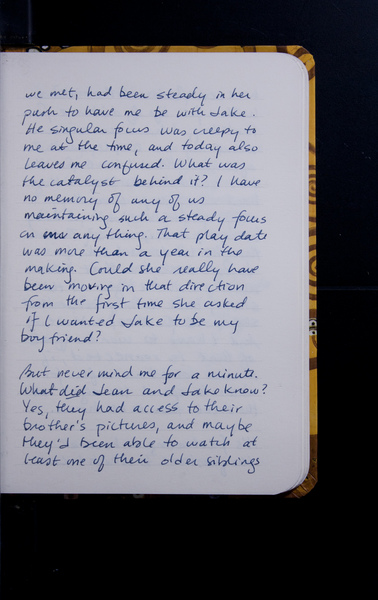 we met, had been steady in her
push to have me be with Jake.
He singular focus was creepy to
me at the time, and today also
leaves me confused. What was
the catalyst behind it? I have
no memory of any of us
maintaining such a steady focus
on any thing. That play date
was more than a year in the
making. Could she really have
been moving in that direction
from the first time she asked
if I wanted Jake to be my
boy friend?
But never mind me for a minute.
What did Jean and Jake know?
Yes, they had access to their
brother's pictures, and maybe
they'd been able to watch at
least one of their older siblings